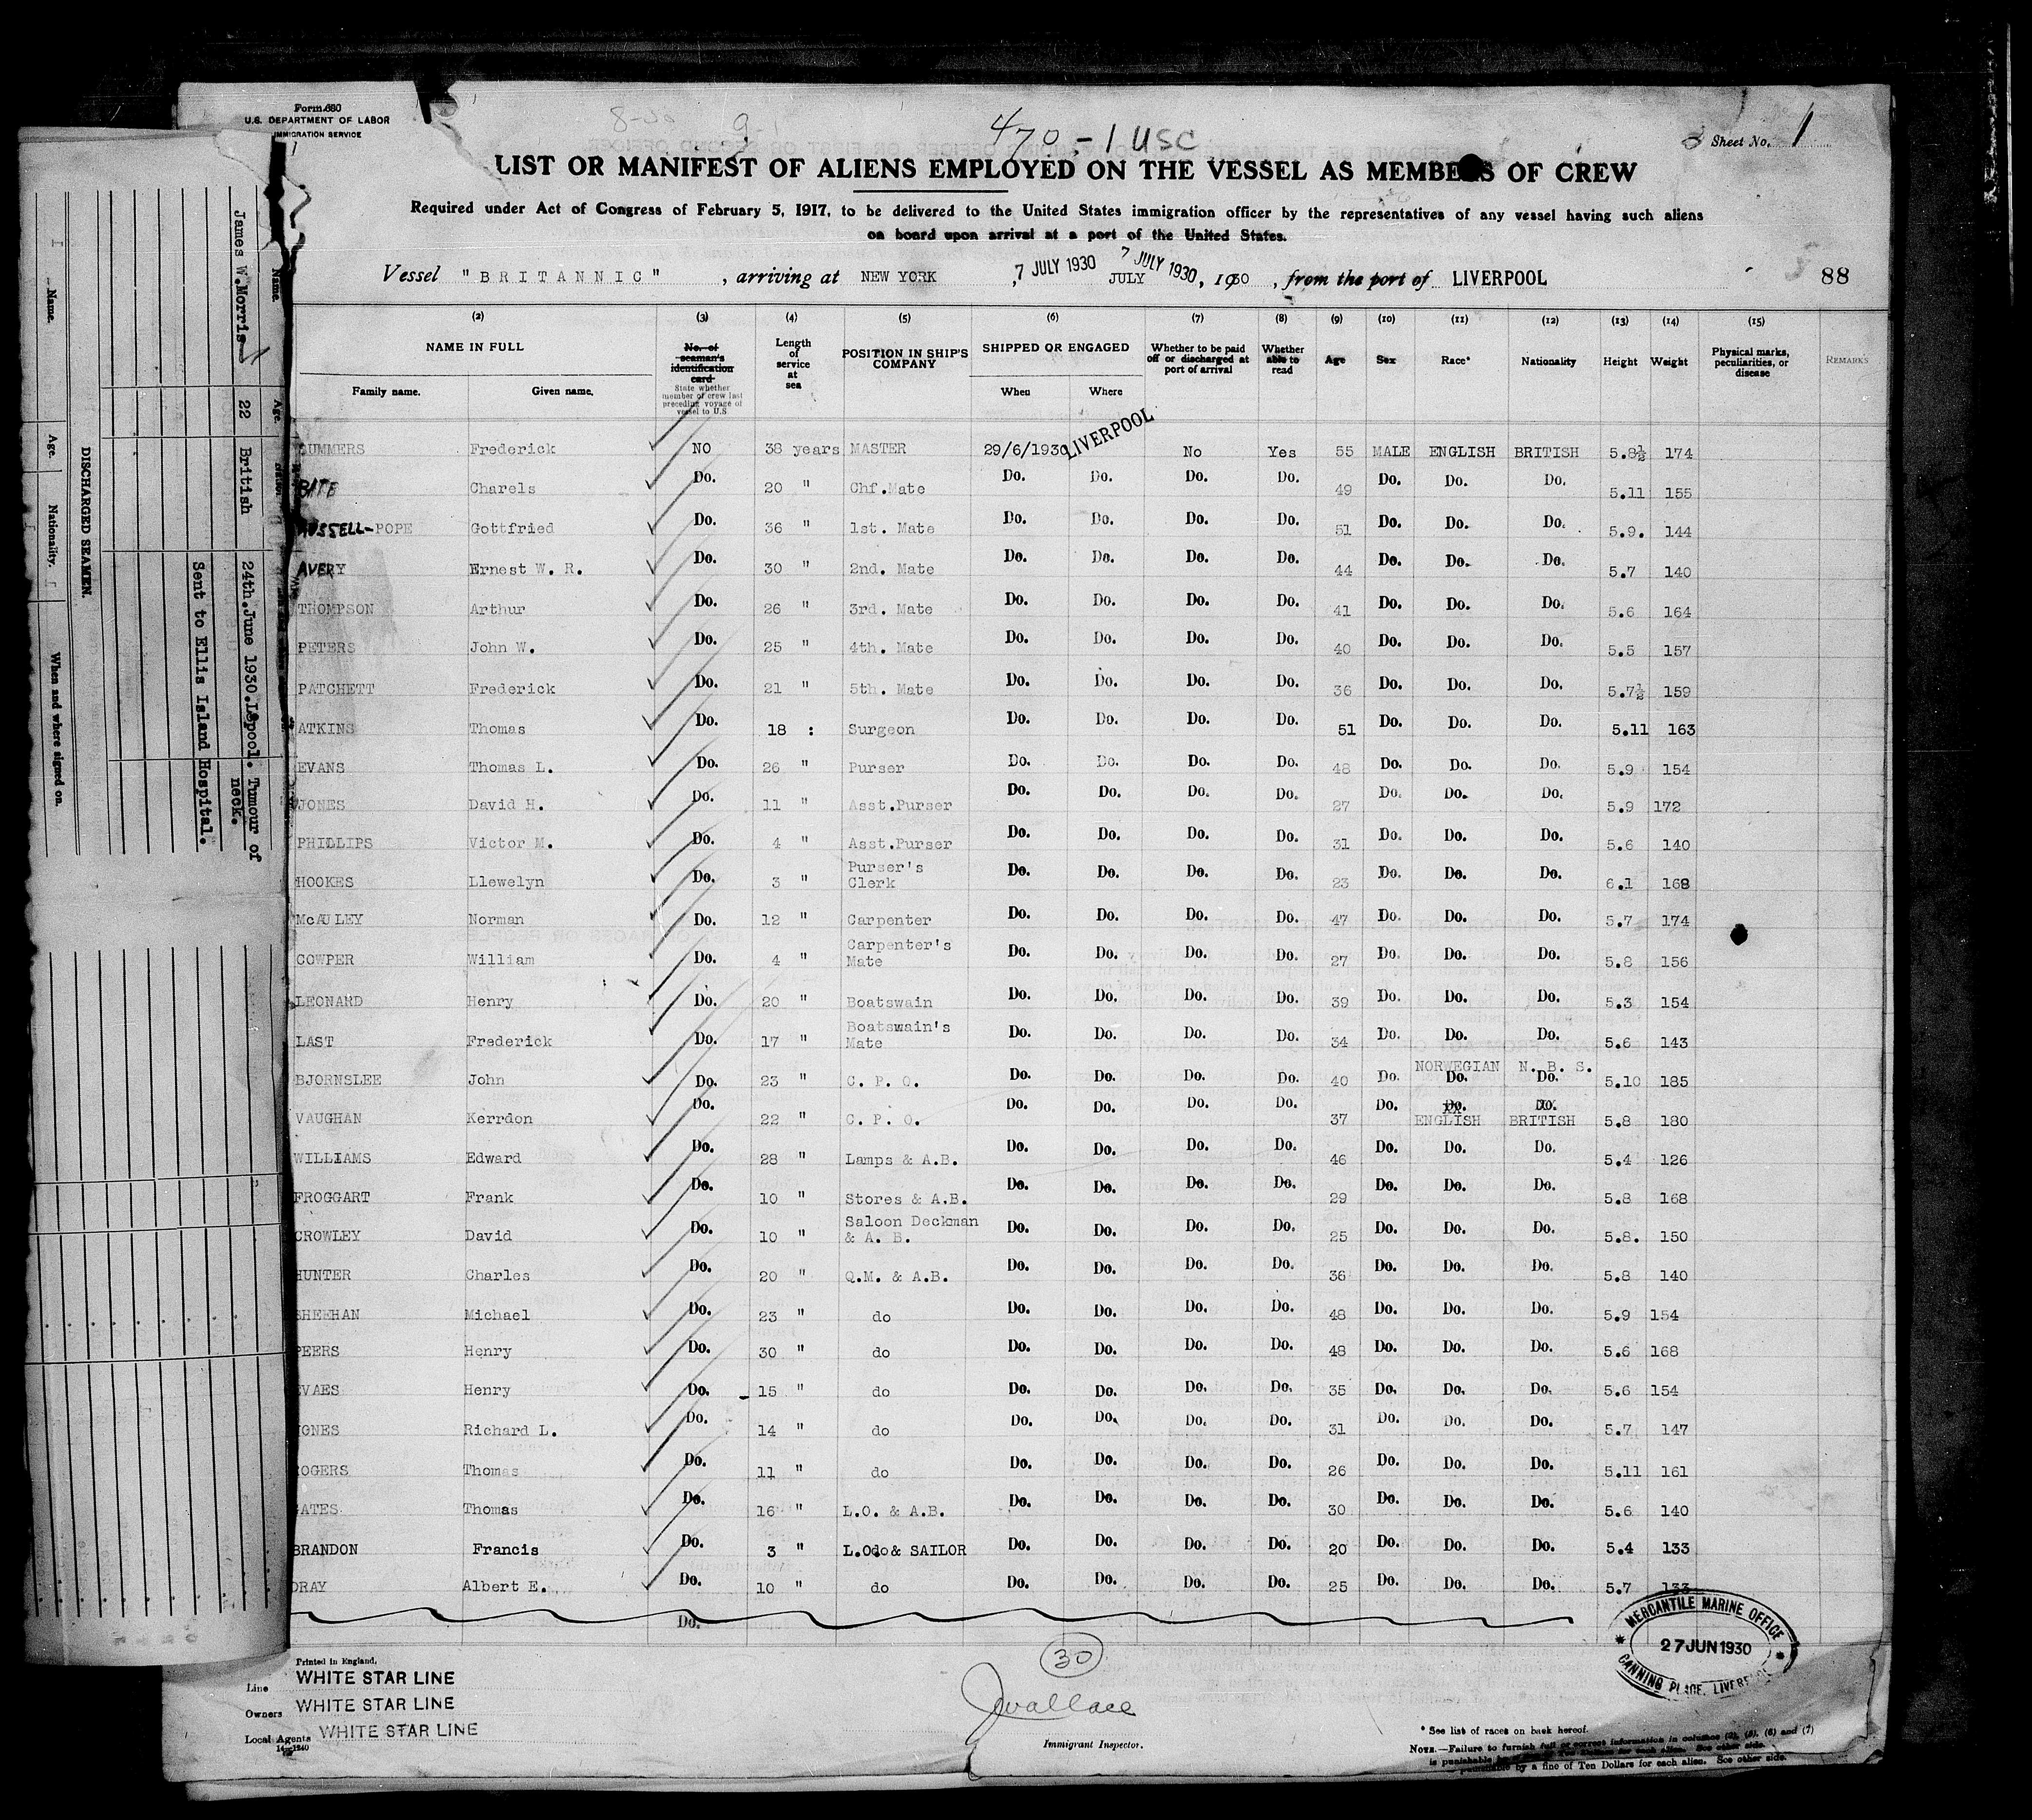 Form 680
U.S. DEPARTMENT OF LABOR
IMMIGRATION SERVICE
470 - 1 USC
Sheet No. 1
LIST OR MANIFEST OF ALIENS EMPLOYED ON THE VESSEL AS MEMBERS OF CREW
Required under Act of Congress of February 5, 1917, to be delivered to the United States immigration officer by the representatives of any vessel having such aliens
on board upon arrival at a port of the United States.
Vessel "BRITANNIC", arriving at NEW YORK, 7 JULY 1930 JULY 7 JULY 1930, 1930, from the port of LIVERPOOL 88
(2) (3) (4) (5) (6) (7) (8) (9) (10) (11) (12) (13) (14) (15)
NAME IN FULL
Family name. Given name.
No. of seaman's identification card
State whether member of crew last preceding voyage of vessel to U.S
Length of service at sea
POSITION IN SHIP'S COMPANY
SHIPPED OR ENGAGED
When Where
Whether to be paid off or discharged at port of arrival
Whether able to read
Age Sex Race* Nationality Height Weight
Physical marks, peculiarities, or disease
REMARKS
SUMMERS Frederick NO 38 years MASTER 29/6/1930 LIVERPOOL No Yes 55 MALE ENGLISH BRITISH 5.8½ 174
BATE Charels Do. 20 " Chf.Mate Do. Do. Do. Do. 49 Do. Do. Do. 5.11 155
RUSSELL-POPE Gottfried Do. 36 " 1st. Mate Do. Do. Do. Do. 51 Do. Do. Do. 5.9. 144
AVERY Ernest W. R. Do. 30 " 2nd. Mate Do. Do. Do. Do. 44 Do. Do. Do. 5.7 140
THOMPSON Arthur Do. 26 " 3rd. Mate Do. Do. Do. Do. 41 Do. Do. Do. 5.6 164
PETERS John W. Do. 25 " 4th. Mate Do. Do. Do. Do. 40 Do. Do. Do. 5.5 157
PATCHETT Frederick Do. 21 " 5th. Mate Do. Do. Do. Do. 36 Do. Do. Do. 5.7½ 159
ATKINS Thomas Do. 18 : Surgeon Do. Do. Do. Do. 51 Do. Do. Do. 5.11 163
EVANS Thomas L. Do. 26 " Purser Do. Do. Do. Do. 48 Do. Do. Do. 5.9 154
JONES David H. Do. 11 " Asst.Purser Do. Do. Do. Do. 27 Do. Do. Do. 5.9 172
PHILLIPS Victor M. Do. 4 " Asst.Purser Do. Do. Do. Do. 31 Do. Do. Do. 5.6 140
HOOKES Llewelyn Do. 3 " Purser's Clerk Do. Do. Do. Do. 23 Do. Do. Do. 6.1 168
McAULEY Norman Do. 12 " Carpenter Do. Do. Do. Do. 47 Do. Do. Do. 5.7 174
COWPER William Do. 4 " Carpenter's Mate Do. Do. Do. Do. 27 Do. Do. Do. 5.8 156
LEONARD Henry Do. 20 " Boatswain Do. Do. Do. Do. 39 Do. Do. Do. 5.3 154
LAST Frederick Do. 17 " Boatswain's Mate Do. Do. Do. Do. 34 Do. Do. Do. 5.6 143
BJORNSLEE John Do. 23 " C. P. O. Do. Do. Do. Do. 40 Do. NORWEGIAN Do. N. B. S. Do. 5.10 185
VAUGHAN Kerrdon Do. 22 " C. P. O. Do. Do. Do. Do. 37 Do. Do. ENGLISH Do. BRITISH 5.8 180
WILLIAMS Edward Do. 28 " Lamps & A.B. Do. Do. Do. Do. 46 Do. Do. Do. 5.4 126
FROGGART Frank Do. 10 " Stores & A.B. Do. Do. Do. Do. 29 Do. Do. Do. 5.8 168
CROWLEY David Do. 10 " Saloon Deckman & A. B. Do. Do. Do. Do. 25 Do. Do. Do. 5.8. 150
HUNTER Charles Do. 20 " Q.M. & A.B. Do. Do. Do. Do. 36 Do. Do. Do. 5.8 140
SHEEHAN Michael Do. 23 " do Do. Do. Do. Do. 48 Do. Do. Do. 5.9 154
PEERS Henry Do. 30 " do Do. Do. Do. Do. 48 Do. Do. Do. 5.6 168
EVAES Henry Do. 15 " do Do. Do. Do. Do. 35 Do. Do. Do. 5.6 154
JONES Richard L. Do. 14 " do Do. Do. Do. Do. 31 Do. Do. Do. 5.7 147
ROGERS Thomas Do. 11 " do Do. Do. Do. Do. 26 Do. Do. Do. 5.11 161
GATES Thomas Do. 16 " L.O. & A.B. Do. Do. Do. Do. 30 Do. Do. Do. 5.6 140
BRANDON Francis Do. 3 " L.O. & SAILOR Do. Do. Do. Do. 20 Do. Do. Do. 5.4 133
DRAY Albert E. Do. 10 " do Do. Do. Do. Do. 25 Do. Do. Do. 5.7 133
Do.
30
JWallace
Immigrant Inspector.
Printed in England.
Line WHITE STAR LINE
Owners WHITE STAR LINE
Local Agents WHITE STAR LINE
MERCANTILE MARINE OFFICE
27 JUN 1930
CANNING PLACE, LIVERPOOL
* See list of races on back hereof.
NOTE.—Failure to furnish full or correct information in columns (2), (5), (6) and (7)
is punishable by a fine of Ten Dollars for each alien. See other side.
DISCHARGED SEAMEN.
Name. Age. Nationality. When and where signed on.
Name. Age.
James W.Morris 22 British 24th.June 1930.L'pool. Tumour of neck.
Sent to Ellis Island Hospital.